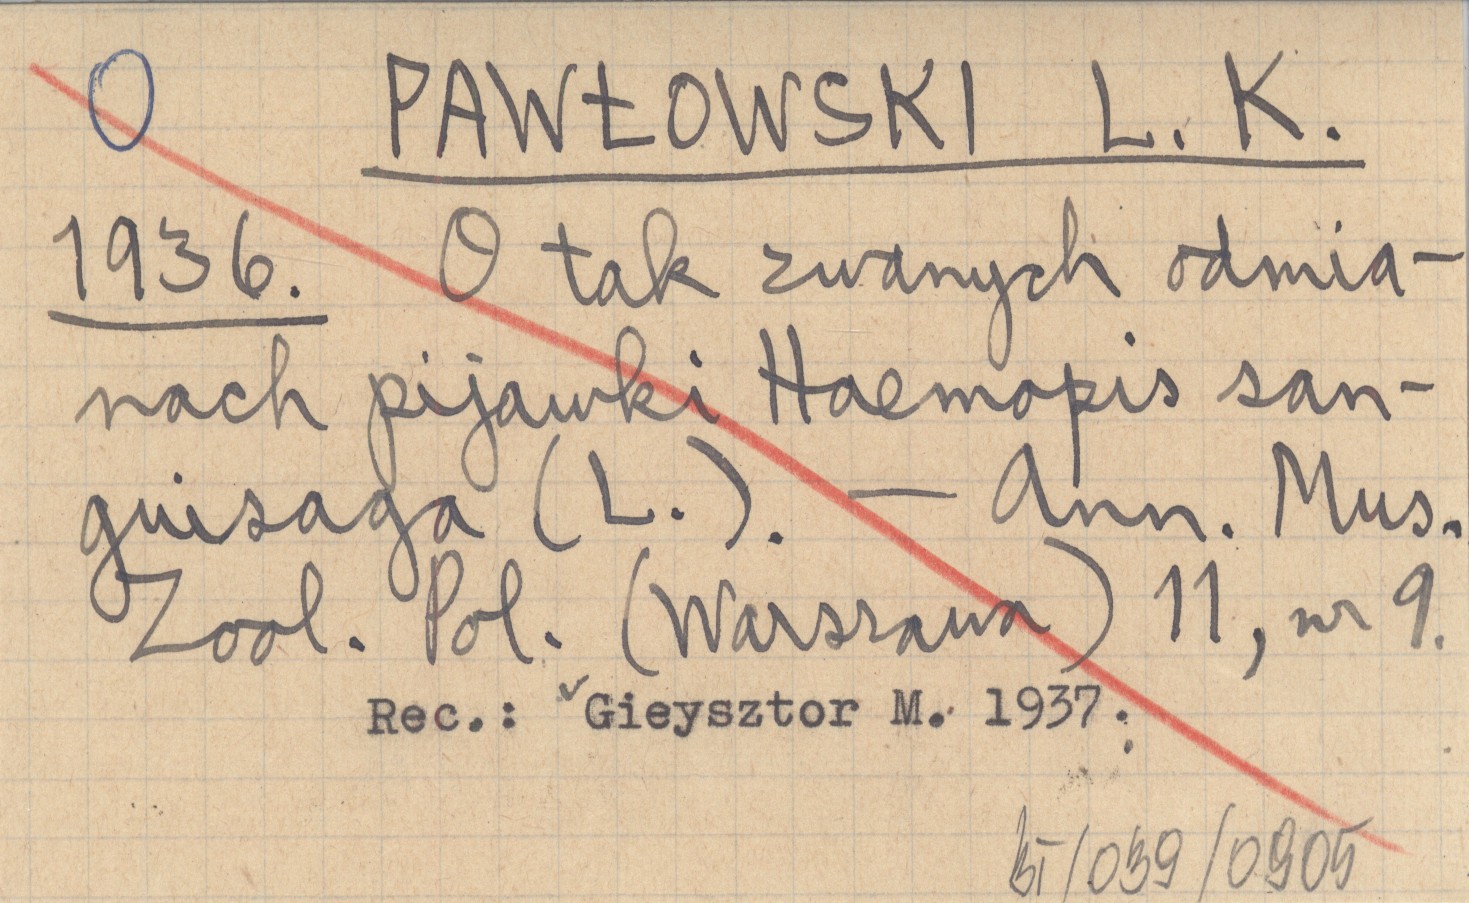 O PAWŁOWSKI L. K.
1936. O tak zwanych odmia-
nach pijawki Haemopis san-
guisaga (L.). — Ann. Mus.
Zool. Pol. (Warszawa) 11, nr 9.
Rec.: ✓Gieysztor M. 1937.
/039/0905